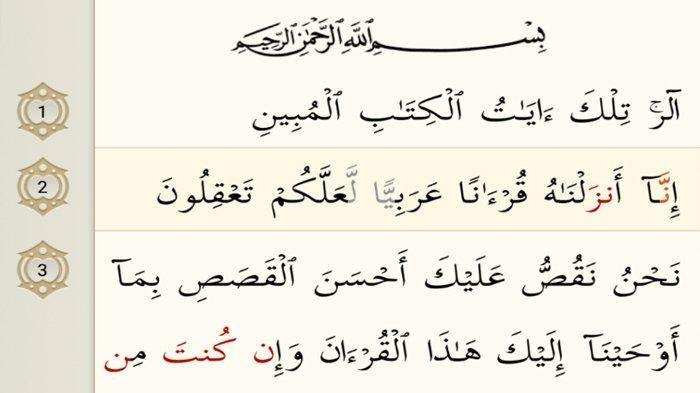 بِسْمِ ٱللَّهِ ٱلرَّحْمَٰنِ ٱلرَّحِيمِ
1 الٓرۚ تِلْكَ ءَايَٰتُ ٱلْكِتَٰبِ ٱلْمُبِينِ
2 إِنَّآ أَنزَلْنَٰهُ قُرْءَٰنًا عَرَبِيًّا لَّعَلَّكُمْ تَعْقِلُونَ
3 نَحْنُ نَقُصُّ عَلَيْكَ أَحْسَنَ ٱلْقَصَصِ بِمَآ
أَوْحَيْنَآ إِلَيْكَ هَٰذَا ٱلْقُرْءَانَ وَإِن كُنتَ مِن